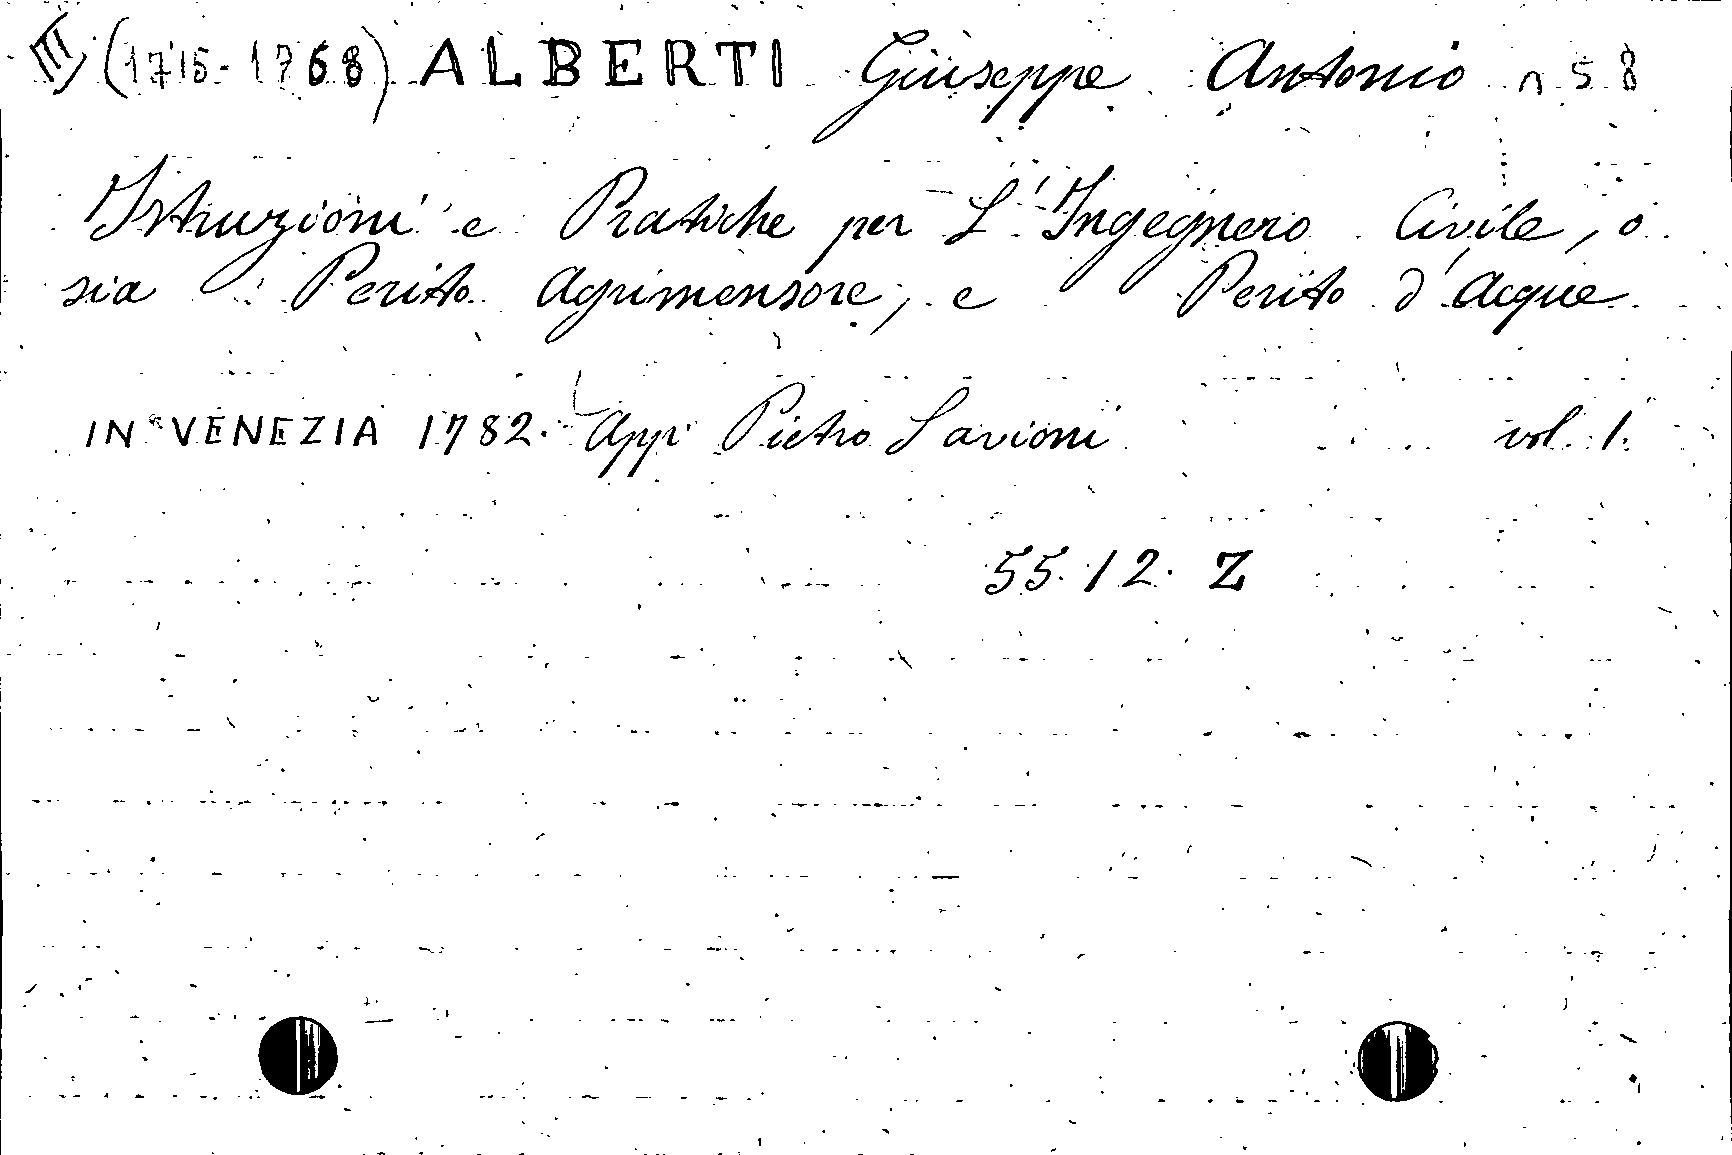 III (1715-1768) ALBERTI Giuseppe Antonio n 58
Istruzioni e Pratiche per L'Ingegnero Civile, o
sia Perito Agrimensore, e Perito d'Acque
IN VENEZIA 1782. App. Pietro Savioni vol. 1.
55.12. Z